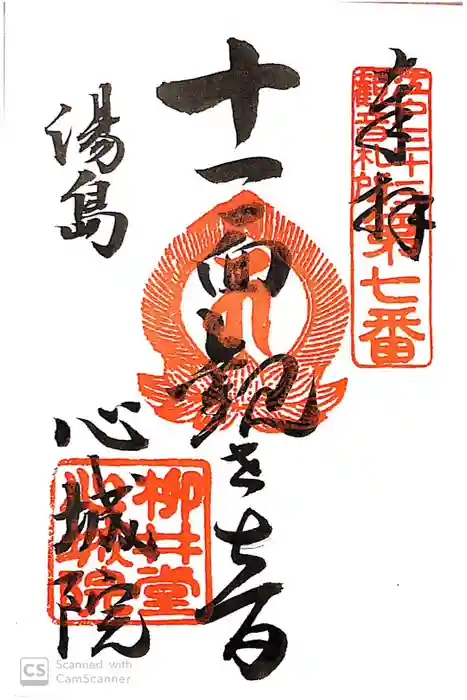 奉拝
江戸三十三
観音札所
第七番
十一面観世音
湯島
心城院
柳井堂
心城院
CS Scanned with
CamScanner